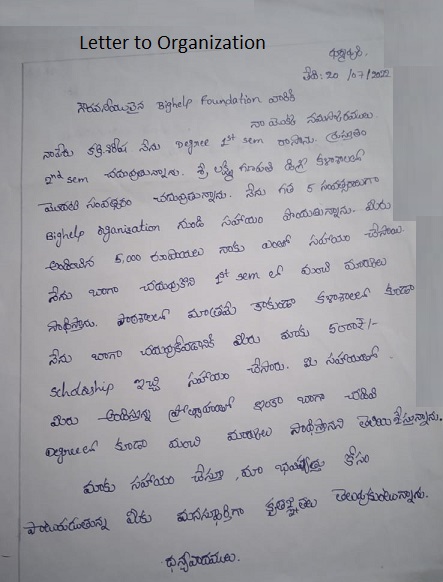 Letter to Organization
తేది: 20 /07/2022
గౌరవనీయులైన Bighelp Foundation వారికి
నా యొక్క నమస్కారములు.
నాపేరు నేను Degree 1st sem రాసాను. ప్రస్తుతం
2nd sem చదువుతున్నాను. శ్రీ లక్ష్మీ డిగ్రీ కళాశాలలో
మొదటి సంవత్సరం చదువుతున్నాను. నేను గత 5 సంవత్సరాలుగా
Bighelp organisation నుండి సహాయం పొందుతున్నాను. మీరు
అందించిన 5,000 రూపాయలు నాకు ఎంతో సహాయం చేసాయి
నేను బాగా చదువుకొని 1st sem లో మంచి మార్కులు
సాధిస్తాను. పాఠశాలలో మాత్రమే కాకుండా కళాశాలలో కూడా
నేను బాగా చదువుకోవడానికి మీరు నాకు 5000₹/-
scholarship ఇచ్చి సహాయం చేసారు. మీ సహాయంతో
మీరు అందిస్తున్న ప్రోత్సాహంతో ఇంకా బాగా చదివి
Degree లో కూడా మంచి మార్కులు సాధిస్తానని తెలియజేస్తున్నాను.
మాకు సహాయం చేస్తూ, మా భవిష్యత్తు కోసం
పాటుపడుతున్న మీకు మనస్ఫూర్తిగా కృతజ్ఞతలు తెలుపుకుంటున్నాను.
ధన్యవాదములు.